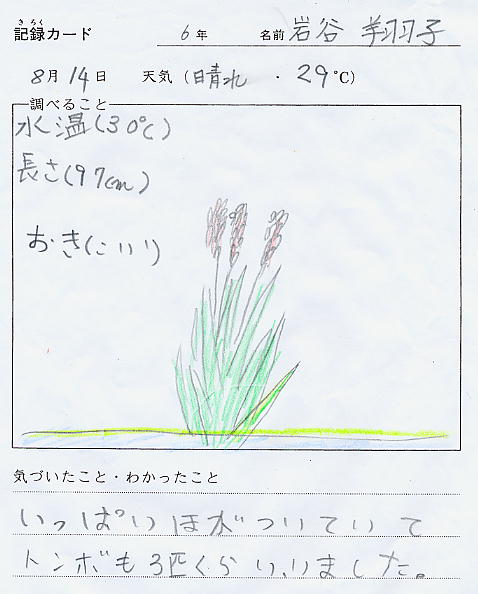 きろく
記録カード 6年 名前 岩谷 翔羽子
8月14日 天気(晴れ ・ 29℃)
調べること
水温(30℃)
長さ(97cm)
おき(こいい)
気づいたこと・わかったこと
いっぱいほがついていて
トンボも3匹くらいいました。